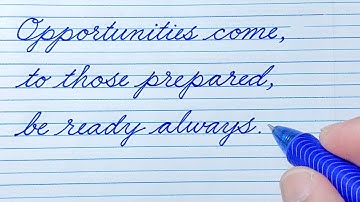 Opportunities come,
to those prepared,
be ready always.